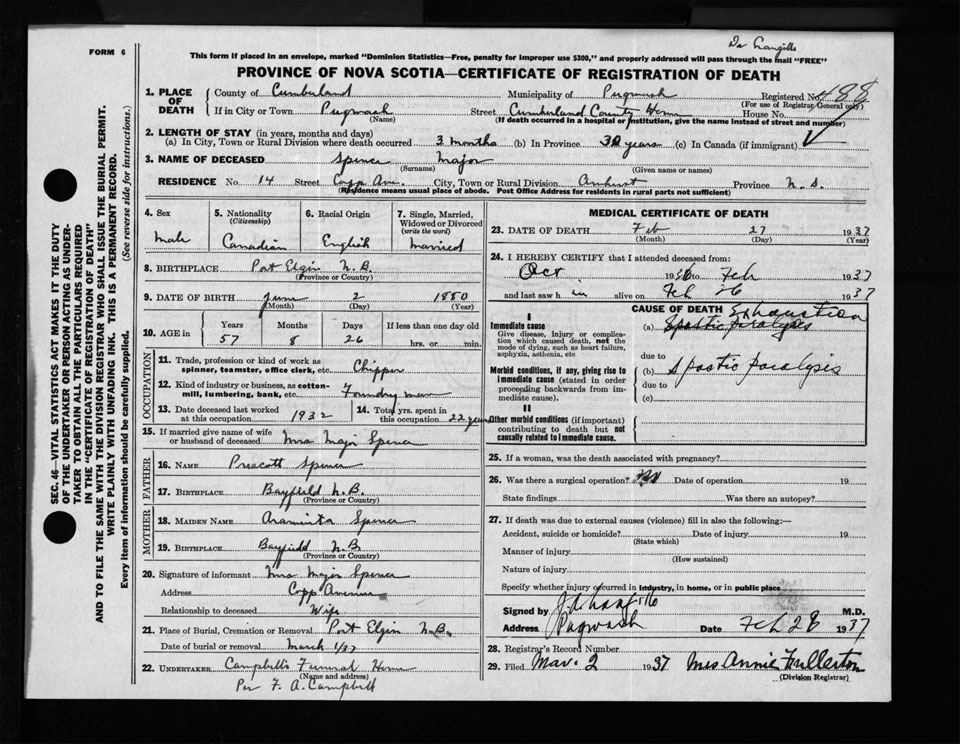 FORM 6
This form if placed in an envelope, marked "Dominion Statistics—Free, penalty for improper use $300," and properly addressed will pass through the mail "FREE"
PROVINCE OF NOVA SCOTIA—CERTIFICATE OF REGISTRATION OF DEATH
SEC. 46—VITAL STATISTICS ACT MAKES IT THE DUTY
OF THE UNDERTAKER OR PERSON ACTING AS UNDER-
TAKER TO OBTAIN ALL THE PARTICULARS REQUIRED
IN THE "CERTIFICATE OF REGISTRATION OF DEATH"
AND TO FILE THE SAME WITH THE DIVISION REGISTRAR WHO SHALL ISSUE THE BURIAL PERMIT.
WRITE PLAINLY WITH UNFADING INK. THIS IS A PERMANENT RECORD.
Every item of information should be carefully supplied. (See reverse side for instructions.)
1. PLACE OF DEATH
County of Cumberland Municipality of Pugwash Registered No. 488
(For use of Registrar General only)
If in City or Town Pugwash Street Cumberland County Home House No.
(Name) (If death occurred in a hospital or institution, give the name instead of street and number)
2. LENGTH OF STAY (in years, months and days)
(a) In City, Town or Rural Division where death occurred 3 months (b) In Province 30 years (c) In Canada (if immigrant)
3. NAME OF DECEASED Spence Major
(Surname) (Given name or names)
RESIDENCE No. 14 Street Copp Ave. City, Town or Rural Division Amherst Province N. S.
(Residence means usual place of abode. Post Office Address for residents in rural parts not sufficient)
4. Sex
Male
5. Nationality
(Citizenship)
Canadian
6. Racial Origin
English
7. Single, Married,
Widowed or Divorced
(write the word)
Married
8. BIRTHPLACE Port Elgin N.B.
(Province or Country)
9. DATE OF BIRTH June 2 1880
(Month) (Day) (Year)
10. AGE in
Years Months Days If less than one day old
57 8 26 hrs. or min.
OCCUPATION
11. Trade, profession or kind of work as
spinner, teamster, office clerk, etc. Chipper
12. Kind of industry or business, as cotton-
mill, lumbering, bank, etc. Foundry man
13. Date deceased last worked
at this occupation 1932
14. Total yrs. spent in
this occupation 22 years
15. If married give name of wife
or husband of deceased Mrs Major Spence
FATHER
16. NAME Prescott Spence
17. BIRTHPLACE Bayfield N.B.
(Province or Country)
MOTHER
18. MAIDEN NAME Araminta Spence
19. BIRTHPLACE Bayfield N.B.
(Province or Country)
20. Signature of informant Mrs Major Spence
Address Copp Avenue
Relationship to deceased Wife
21. Place of Burial, Cremation or Removal Port Elgin N.B.
Date of burial or removal March 1/37
22. UNDERTAKER Campbells Funeral Home
(Name and address)
Per F. A. Campbell
MEDICAL CERTIFICATE OF DEATH
23. DATE OF DEATH Feb 27 1937
(Month) (Day) (Year)
24. I HEREBY CERTIFY that I attended deceased from:
Oct 1936 to Feb 1937
and last saw him alive on Feb 26 1937
CAUSE OF DEATH
I
Immediate cause
Give disease, injury or complica-
tion which caused death, not the
mode of dying, such as heart failure,
asphyxia, asthenia, etc
Morbid conditions, if any, giving rise to
immediate cause (stated in order
proceeding backwards from im-
mediate cause).
II
Other morbid conditions (if important)
contributing to death but not
causally related to immediate cause.
Exhaustion
(a) Spastic paralysis
due to
(b) Spastic paralysis
due to
(c)
25. If a woman, was the death associated with pregnancy?
26. Was there a surgical operation? No Date of operation 19
State findings Was there an autopsy?
27. If death was due to external causes (violence) fill in also the following:—
Accident, suicide or homicide? Date of injury 19
(State which)
Manner of injury
(How sustained)
Nature of injury
Specify whether injury occurred in industry, in home, or in public place
Signed by M.D.
Address Pugwash Date Feb 28 1937
28. Registrar's Record Number
29. Filed Mar. 2 1937 Mrs Annie Fullerton
(Division Registrar)